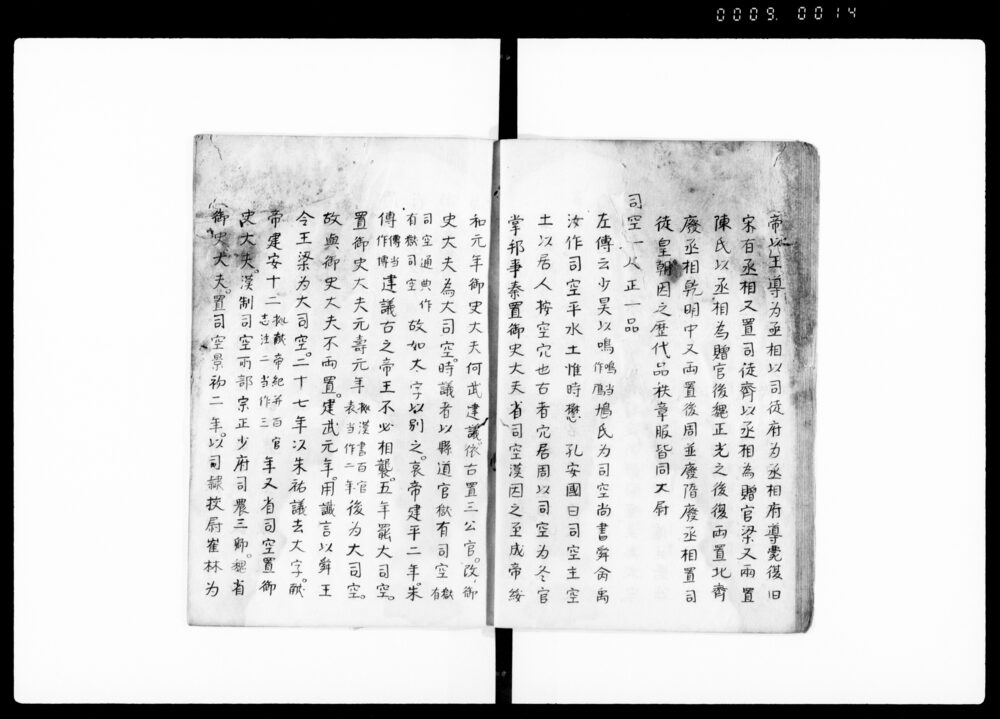 0009. 0014
帝以王導為丞相以司徒府為丞相府導薨復旧
宋有丞相又置司徒齊以丞相為贈官梁又兩置
陳氏以丞相為贈官後魏正光之後復兩置北齊
廢丞相乾明中又兩置後周並廢隋廢丞相置司
徒皇朝因之歷代品秩章服皆同大尉
司空一人正一品
左傳云少昊以鳴鳴当作鳲鳩氏為司空尚書舜命禹
汝作司空平水土惟時懋孔安國曰司空主空
土以居人按空穴也古者穴居周以司空為冬官
掌邦事秦置御史大夫省司空漢因之至成帝綏
和元年御史大夫何武建議。依古置三公官。改御
史大夫為大司空。時議者以縣道官獄有司空獄有
司空通典作有獄司空故加大字以別之。哀帝建平二年。朱
傳傳当作博建議古之帝王不必相襲。五年罷大司空。
置御史大夫元壽元年按漢書百官表当作二年後為大司空。
故與御史大夫不兩置。建武元年。用讖言以舜王
令王梁為大司空。二十七年以朱祐議去大字。献
帝建安十二按献帝紀并百官志注二当作三年又省司空置御
史大夫。漢制司空所部宗正少府司農三卿。魏省
御史大夫。置司空景初二年。以司隷挍尉崔林為